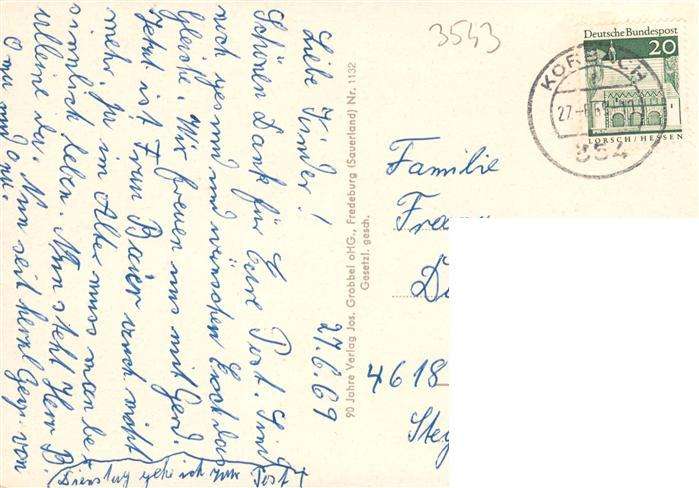 3543
Deutsche Bundespost
20
LORSCH/HESSEN
KORBACH
27.-6.
354
90 Jahre Verlag Jos. Grobbel oHG., Fredeburg (Sauerland) Nr. 1132
Gesetzl. gesch.
27.6.69
Liebe Kinder!
Schönen Dank für Eure Post. Sind
noch gesund und wünschen Euch das
Gleiche. Wir freuen uns mit Gerd.
Jetzt ist Frau Baier auch nicht
mehr. Ja im Alter muss man be-
sinnlich leben. Nun steht Herr B.
alleine da. Nun seid herzl. Gegr. von
Oma und Opa.
Dienstag gehe ich zur Post
Familie
Fra
D
4618
Ste